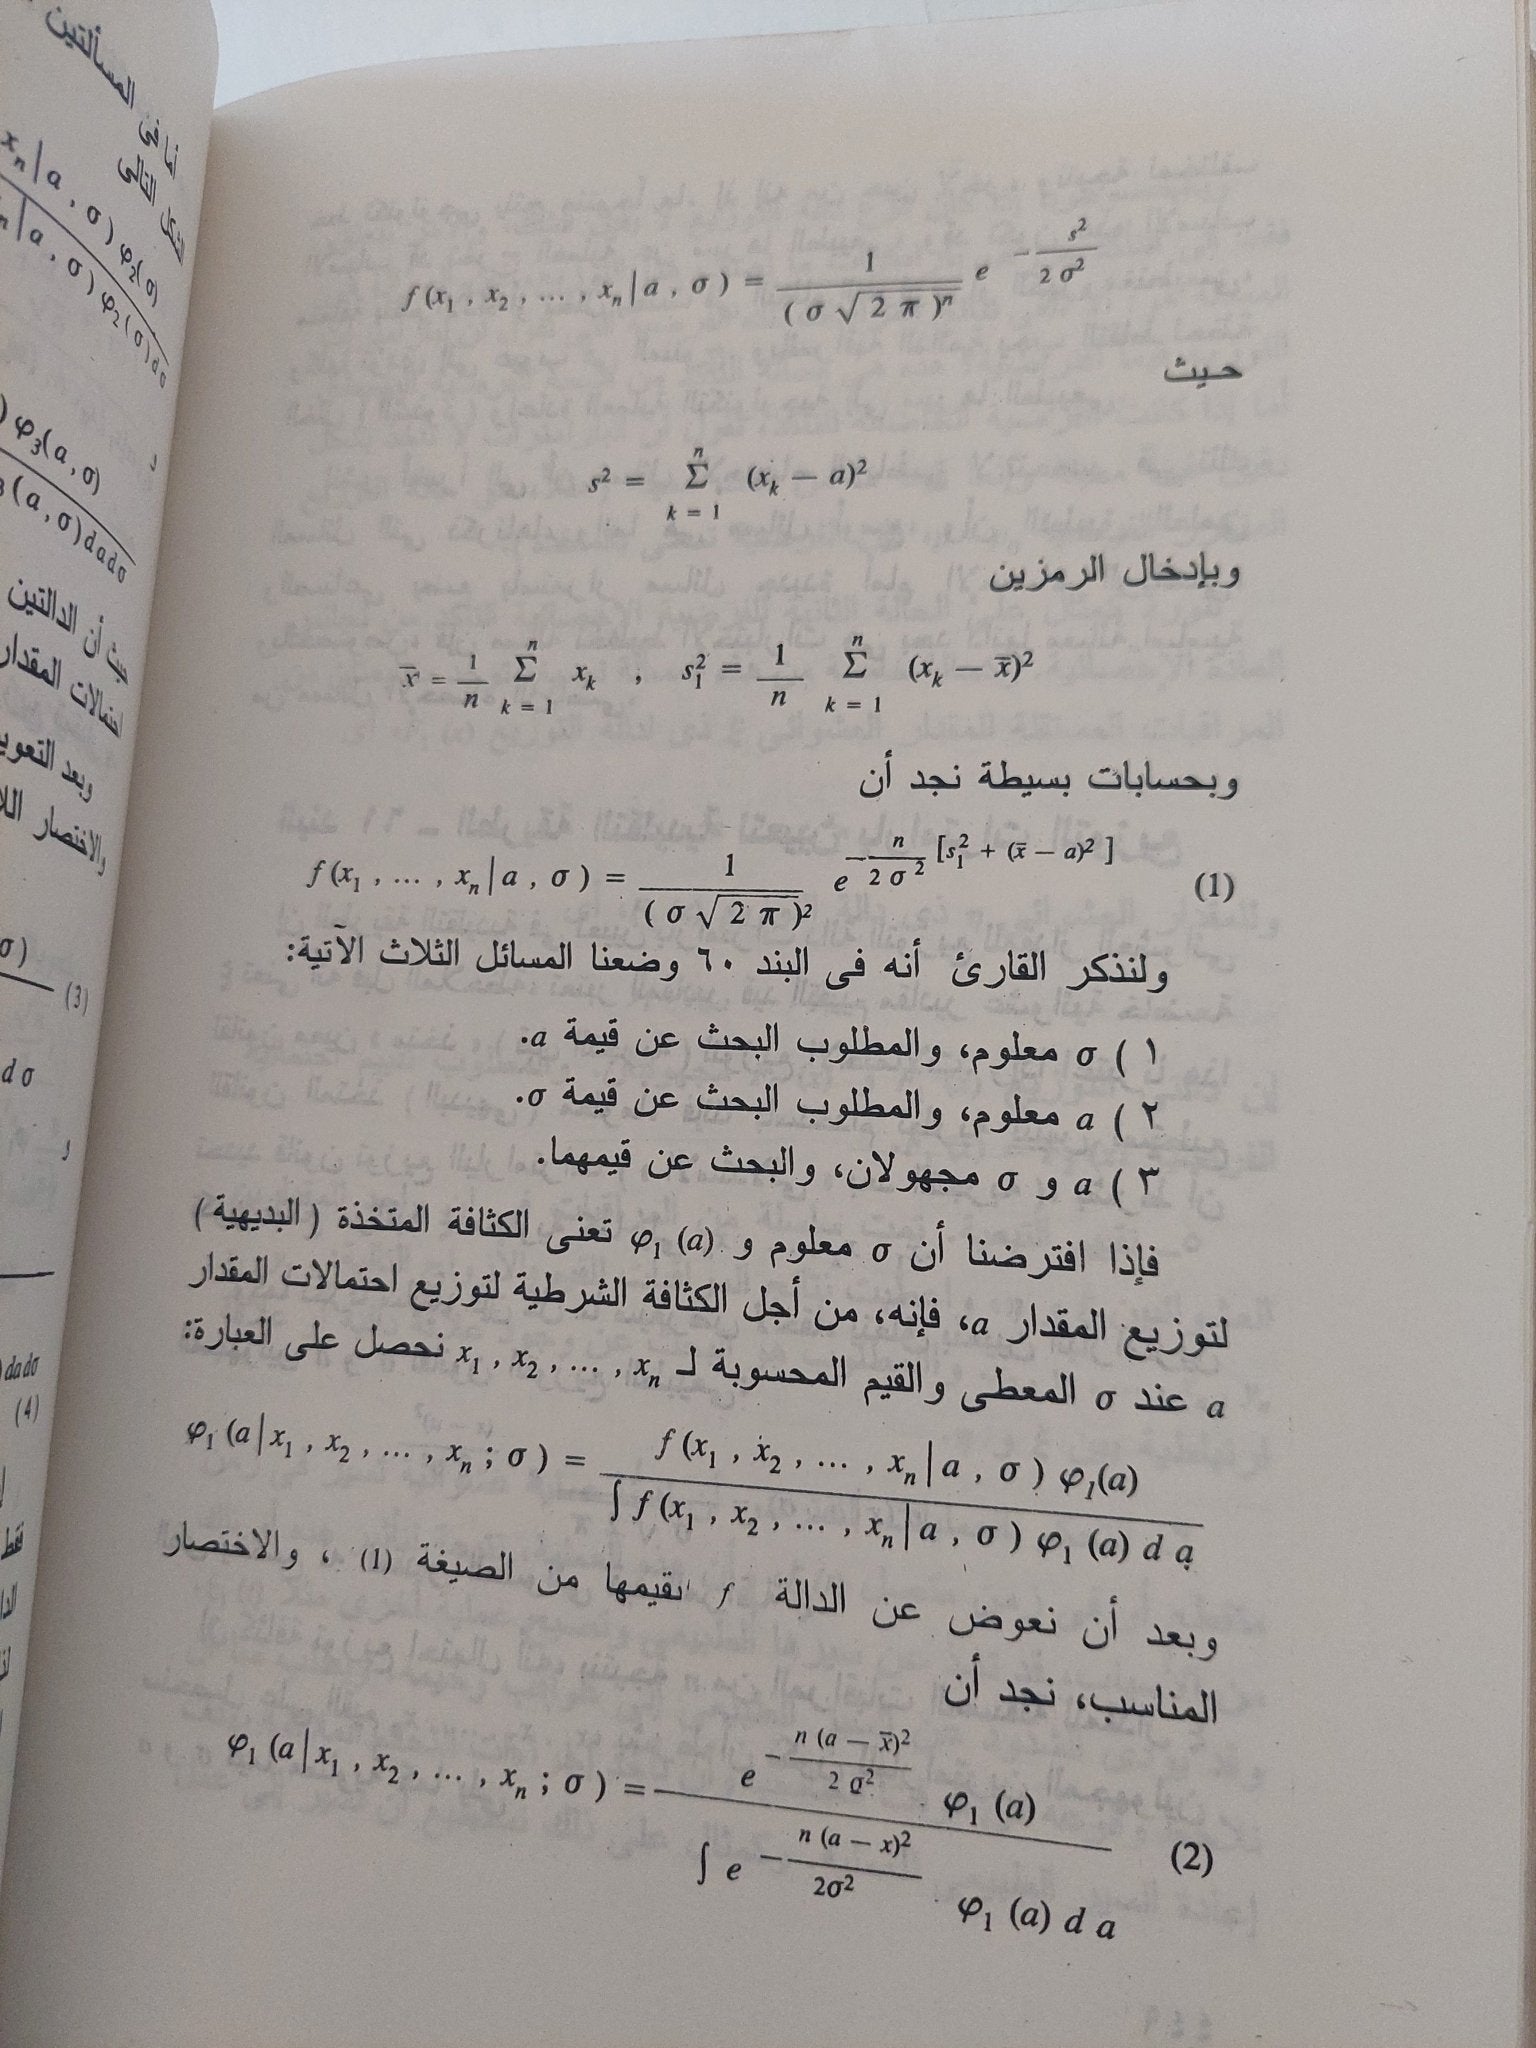 f (x₁ , x₂ , ... , xₙ | a , σ ) = 1 / ( σ √ 2 π )ⁿ e ^ − s² / 2 σ²
حيث
s² = Σ_{k = 1}^{n} (x_k − a)²
وبإدخال الرمزين
x̄ = 1/n Σ_{k = 1}^{n} x_k , s₁² = 1/n Σ_{k = 1}^{n} (x_k − x̄)²
وبحسابات بسيطة نجد أن
f (x₁ , ... , xₙ | a , σ ) = 1 / ( σ √ 2 π )² e ^ − n / 2 σ² [s₁² + (x̄ − a)² ] (1)
ولنذكر القارئ أنه فى البند ٦٠ وضعنا المسائل الثلاث الآتية:
١ ) σ معلوم، والمطلوب البحث عن قيمة a.
٢ ) a معلوم، والمطلوب البحث عن قيمة σ.
٣ ) a و σ مجهولان، والبحث عن قيمهما.
فإذا افترضنا أن σ معلوم و φ₁ (a) تعنى الكثافة المتخذة ( البديهية )
لتوزيع المقدار a، فإنه، من أجل الكثافة الشرطية لتوزيع احتمالات المقدار
a عند σ المعطى والقيم المحسوبة لـ x₁ , x₂ , ... , xₙ نحصل على العبارة:
φ₁ (a | x₁ , x₂ , ... , xₙ ; σ ) = f (x₁ , x₂ , ... , xₙ | a , σ ) φ₁(a) / ∫ f (x₁ , x₂ , ... , xₙ | a , σ ) φ₁ (a) d a
وبعد أن نعوض عن الدالة f بقيمها من الصيغة (1) ، والاختصار
المناسب، نجد أن
φ₁ (a | x₁ , x₂ , ... , xₙ ; σ ) = e ^ − n (a − x̄)² / 2 σ² φ₁ (a) / ∫ e ^ − n (a − x)² / 2σ² φ₁ (a) d a (2)